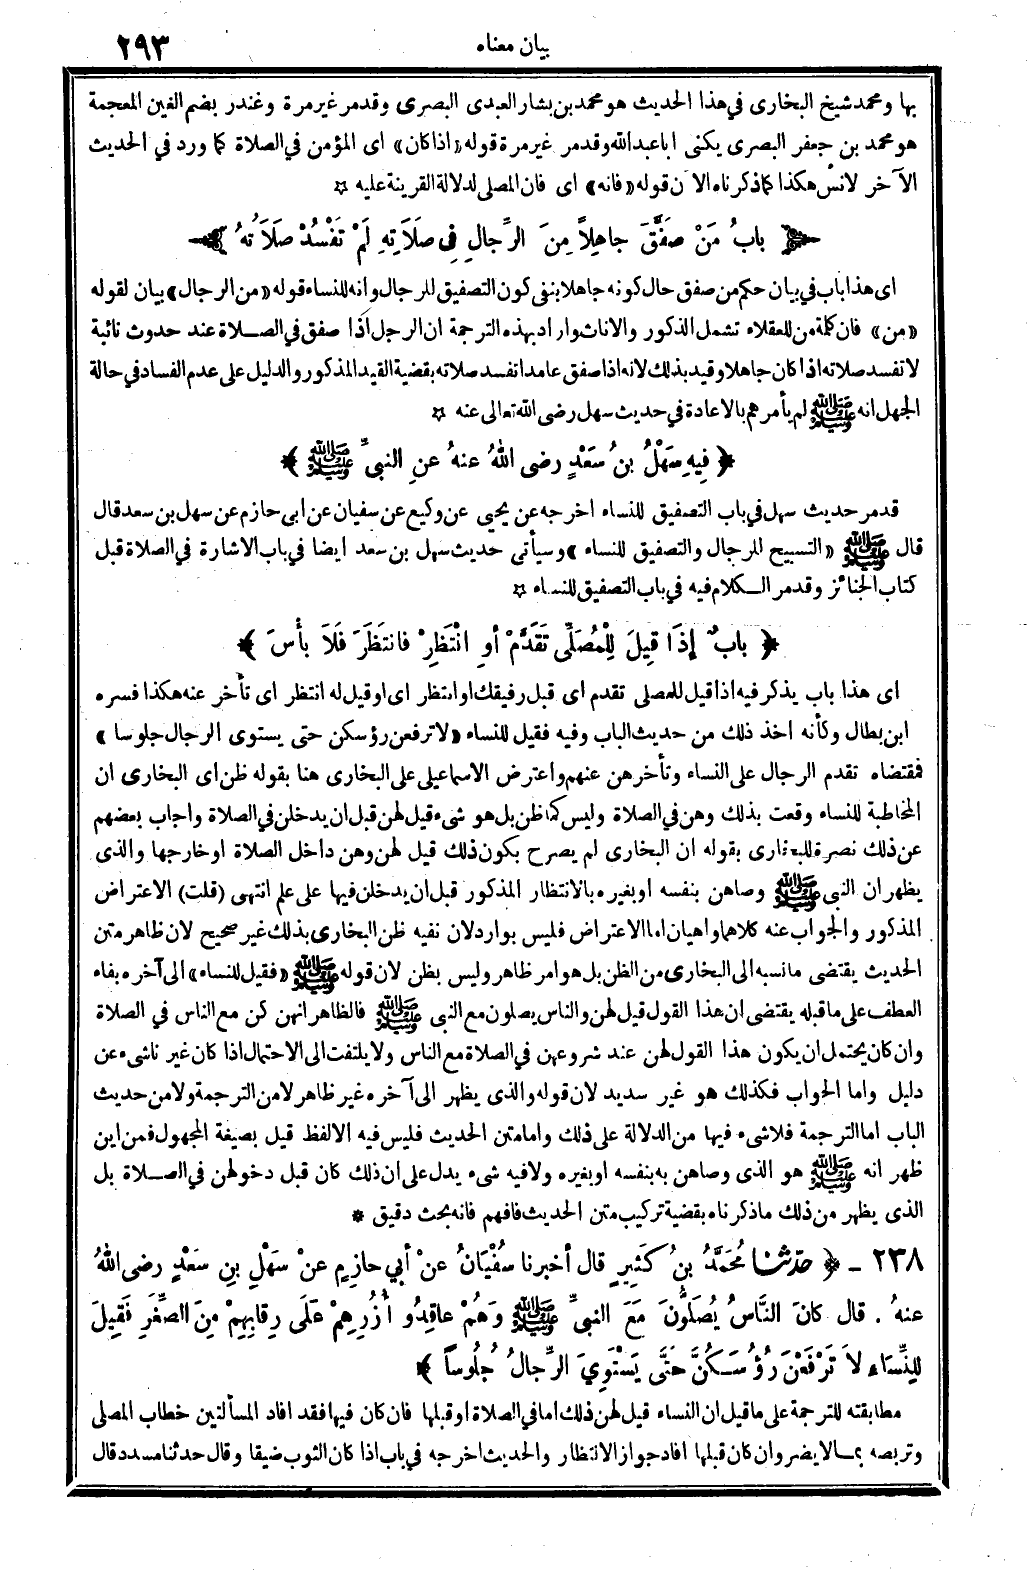 بيان معناه
٢٩٣
بها ومحمد شيخ البخارى في هذا الحديث هو محمد بن بشار العبدى البصرى وقد مر غير مرة وغندر بضم الغين المعجمة
هو محمد بن جعفر البصرى يكنى ابا عبد الله وقد مر غير مرة قوله «اذا كان» اى المؤمن في الصلاة كما ورد في الحديث
الآخر لأنس هكذا كما ذكرناه الآن قوله «فانه» اى فان المصلى لدلالة القرينة عليه ☆
﴿ بابُ مَنْ صفَّقَ جاهِلاً مِنَ الرِّجالِ فِى صلَاَتِهِ لَمْ تَفْسُدْ صلَاَتُهُ ﴾
اى هذا باب في بيان حكم من صفق حال كونه جاهلا بنفى كون التصفيق للرجال وانه للنساء قوله «من الرجال» بيان لقوله
«من» فان كلمة من للعقلاء تشمل الذكور والاناث واراد بهذه الترجمة ان الرجل اذا صفق في الصلاة عند حدوث نائبة
لا تفسد صلاته اذا كان جاهلا وقيد بذلك لانه اذا صفق عامدا تفسد صلاته بقضية القيد المذكور والدليل على عدم الفساد في حالة
الجهل انه ﷺ لم يأمرهم بالاعادة في حديث سهل رضى الله تعالى عنه ☆
﴿ فِيهِ سَهْلُ بنُ سَعْدٍ رضى اللهُ عنهُ عنِ النبىِّ ﷺ ﴾
قد مر حديث سهل في باب التصفيق للنساء اخرجه عن يحيى عن وكيع عن سفيان عن ابى حازم عن سهل بن سعد قال
قال ﷺ «التسبيح للرجال والتصفيق للنساء» وسيأتى حديث سهل بن سعد ايضا في باب الاشارة في الصلاة قبل
كتاب الجنائز وقد مر الكلام فيه في باب التصفيق للنساء ☆
﴿ بابٌ إذَا قِيلَ لِلْمُصَلِّى تَقَدَّمْ أوِ انْتَظِرْ فانتَظَرَ فَلَا بأْسَ ﴾
اى هذا باب يذكر فيه اذا قيل للمصلى تقدم اى قبل رفيقك او انتظر اى او قيل له انتظر اى تأخر عنه هكذا فسره
ابن بطال وكأنه اخذ ذلك من حديث الباب وفيه فقيل للنساء «لا ترفعن رؤسكن حتى يستوى الرجال جلوسا»
فمقتضاه تقدم الرجال على النساء وتأخرهن عنهم واعترض الاسماعيلى على البخارى هنا بقوله ظن اى البخارى ان
المخاطبة للنساء وقعت بذلك وهن في الصلاة وليس كما ظن بل هو شىء قيل لهن قبل ان يدخلن في الصلاة واجاب بعضهم
عن ذلك نصرة للبخارى بقوله ان البخارى لم يصرح بكون ذلك قيل لهن وهن داخل الصلاة او خارجها والذى
يظهر ان النبى ﷺ وصاهن بنفسه او بغيره بالانتظار المذكور قبل ان يدخلن فيها على علم انتهى (قلت) الاعتراض
المذكور والجواب عنه كلاهما واهيان اما الاعتراض فليس بوارد لان نفيه ظن البخارى بذلك غير صحيح لان ظاهر متن
الحديث يقتضى ما نسبه الى البخارى من الظن بل هو امر ظاهر وليس بظن لان قوله ﷺ «فقيل للنساء» الى آخره بفاء
العطف على ما قبله يقتضى ان هذا القول قيل لهن والناس يصلون مع النبى ﷺ فالظاهر انهن كن مع الناس في الصلاة
وان كان يحتمل ان يكون هذا القول لهن عند شروعهن في الصلاة مع الناس ولا يلتفت الى الاحتمال اذا كان غير ناشىء عن
دليل واما الجواب فكذلك هو غير سديد لان قوله والذى يظهر الى آخره غير ظاهر لا من الترجمة ولا من حديث
الباب اما الترجمة فلا شىء فيها من الدلالة على ذلك واما متن الحديث فليس فيه الا لفظ قيل بصيغة المجهول فمن اين
ظهر انه ﷺ هو الذى وصاهن به بنفسه او بغيره ولا فيه شىء يدل على ان ذلك كان قبل دخولهن في الصلاة بل
الذى يظهر من ذلك ما ذكرناه بقضية تركيب متن الحديث فافهم فانه بحث دقيق *
٢٣٨ - ﴿ حدّثنا مُحَمَّدُ بنُ كَثِيرٍ قال أخبرنا سُفْيَانُ عنْ أبي حازِمٍ عنْ سَهْلِ بنِ سَعْدٍ رضى اللهُ
عنهُ . قال كانَ النَّاسُ يُصَلُّونَ مَعَ النبىِّ ﷺ وَهُمْ عاقِدُو أُزُرِهِمْ عَلَى رِقابِهِمْ مِنَ الصِّغَرِ فَقِيلَ
لِلنِّسَاءِ لاَ تَرْفَعْنَ رُؤُسَكُنَّ حَتَّى يَسْتَوِيَ الرِّجالُ جُلُوساً ﴾
مطابقته للترجمة على ما قيل ان النساء قيل لهن ذلك اما في الصلاة او قبلها فان كان فيها فقد افاد المسألتين خطاب المصلى
وتربصه بما لا يضر وان كان قبلها افاد جواز الانتظار والحديث اخرجه في باب اذا كان الثوب ضيقا وقال حدثنا مسدد قال